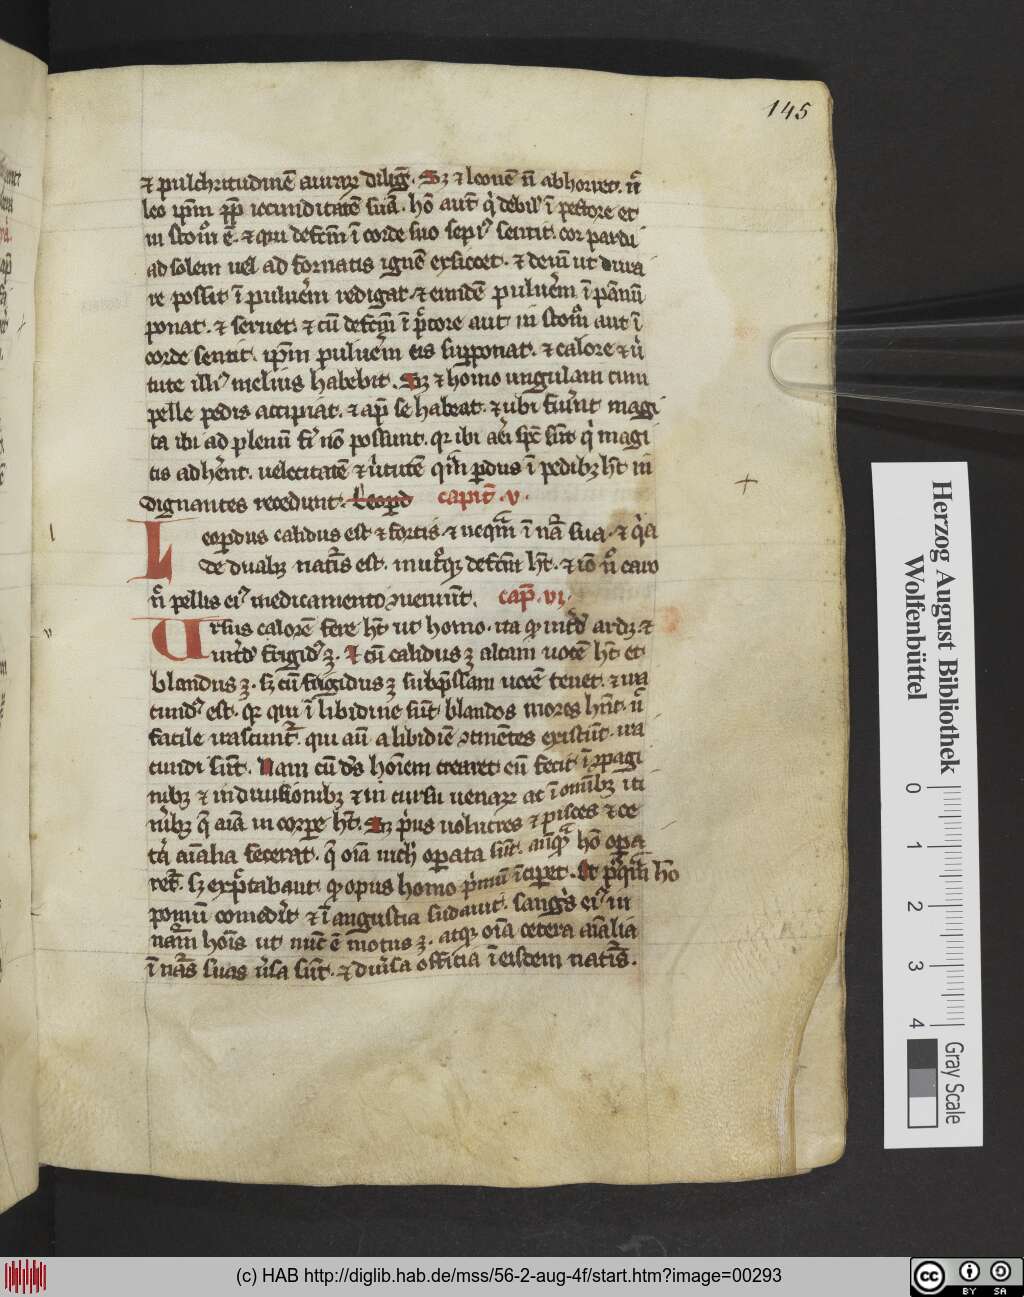 145
⁊ pulchritudinē aurarꝝ dilig̅. Sꝫ ⁊ leonē n̄ abhorret. n̄
leo ip̄m ꝓp̄ iocunditatē suā. hō aut̄ q̇ debil᷒ ī pectore et
in stom̊ ē. ⁊ qui defcm̄ ī corde suo sepi᷒ sentit. cor pardi
ad solem uel ad fornacis ignē exsiccet. ⁊ deīn ut dura
re possit ī puluerm̄ redigat. ⁊ eundē puluerm̄ ī pānū
ponat. ⁊ seruet. ⁊ cū defcm̄ ī pctore aut in stom̊ aut ī
corde sentit. ip̄m puluerm̄ eis suꝑponat. ⁊ calore ⁊ ur̄
tute illi᷒ melius habebit. Sꝫ ⁊ homo ungulam cum
pelle pedis accipiat. ⁊ ap̄ se habeat. ⁊ ubi fuer̄nt magi
ca ibi ad plenū fi̅ nō possunt. qꝛ ibi aer̄i spc̄ sūt q̇ magi
cis adher̄ent. uelocitatē ⁊ uir̄tutē ꝑdus ī pedibꝫ hꝫ in
dignantes recedunt. Leopd capit̄. v.
Leopdus calidus est ⁊ fortis. ⁊ neqm̄ ī nā sua. ⁊ q̇a
de duabꝫ natis̄ est. defcm̄ hꝫ. ⁊ iō n̄ caro
n̄ pellis ei᷒ medicamento ꝯueniūt. cap̄. vi.
Ursus calorē fere hꝫ ut homo. ita ꝙ int̄dū ardꝫ. ⁊
int̄dū frigid᷒ ꝫ. ⁊ cū calidus ꝫ altam uocē hꝫ et
blandus ꝫ. sꝫ cū frigidus ꝫ subp̄ssam uocē tenet. ⁊ ira
cund᷒ est. qꝛ qui ī libidine sūt blandos mores hn̄t. n̄
facile irascunt̄. qui aū a libidiē ꝯtinētes existūt. ira
cundi sūt. Nam cū ds̄ hoiēm crearet eū fecit ī
nibꝫ ⁊ in diuisionibꝫ ⁊ in cursu uenarꝝ ac ī omībꝫ iti
ner̄ibꝫ q̄ aiā in corꝑe hꝫ. Sꝫ pr̄us uolucres ⁊ pisces ⁊ ce
ta᷒ aialia fecerat. q̄ oīa nichˡ oꝑata sūt. an̄qᷓ hō opa
ret̄. sꝫ expc̄tabant ꝙ opus homo primū īciꝑet. hō
pomū comedīt ⁊ ī angustia sudauit. sangˢ ei᷒ in
nam̄ hoīs ut nūc ē motus ꝫ. atqꝫ oīa cetera aialia
ī nās suas uˢa sūt. ⁊ diuˢa officia ī eisdem natis̄.
Herzog August Bibliothek
Wolfenbüttel
0 1 2 3 4
Gray Scale
(c) HAB http://diglib.hab.de/mss/56-2-aug-4f/start.htm?image=00293
cc BY SA